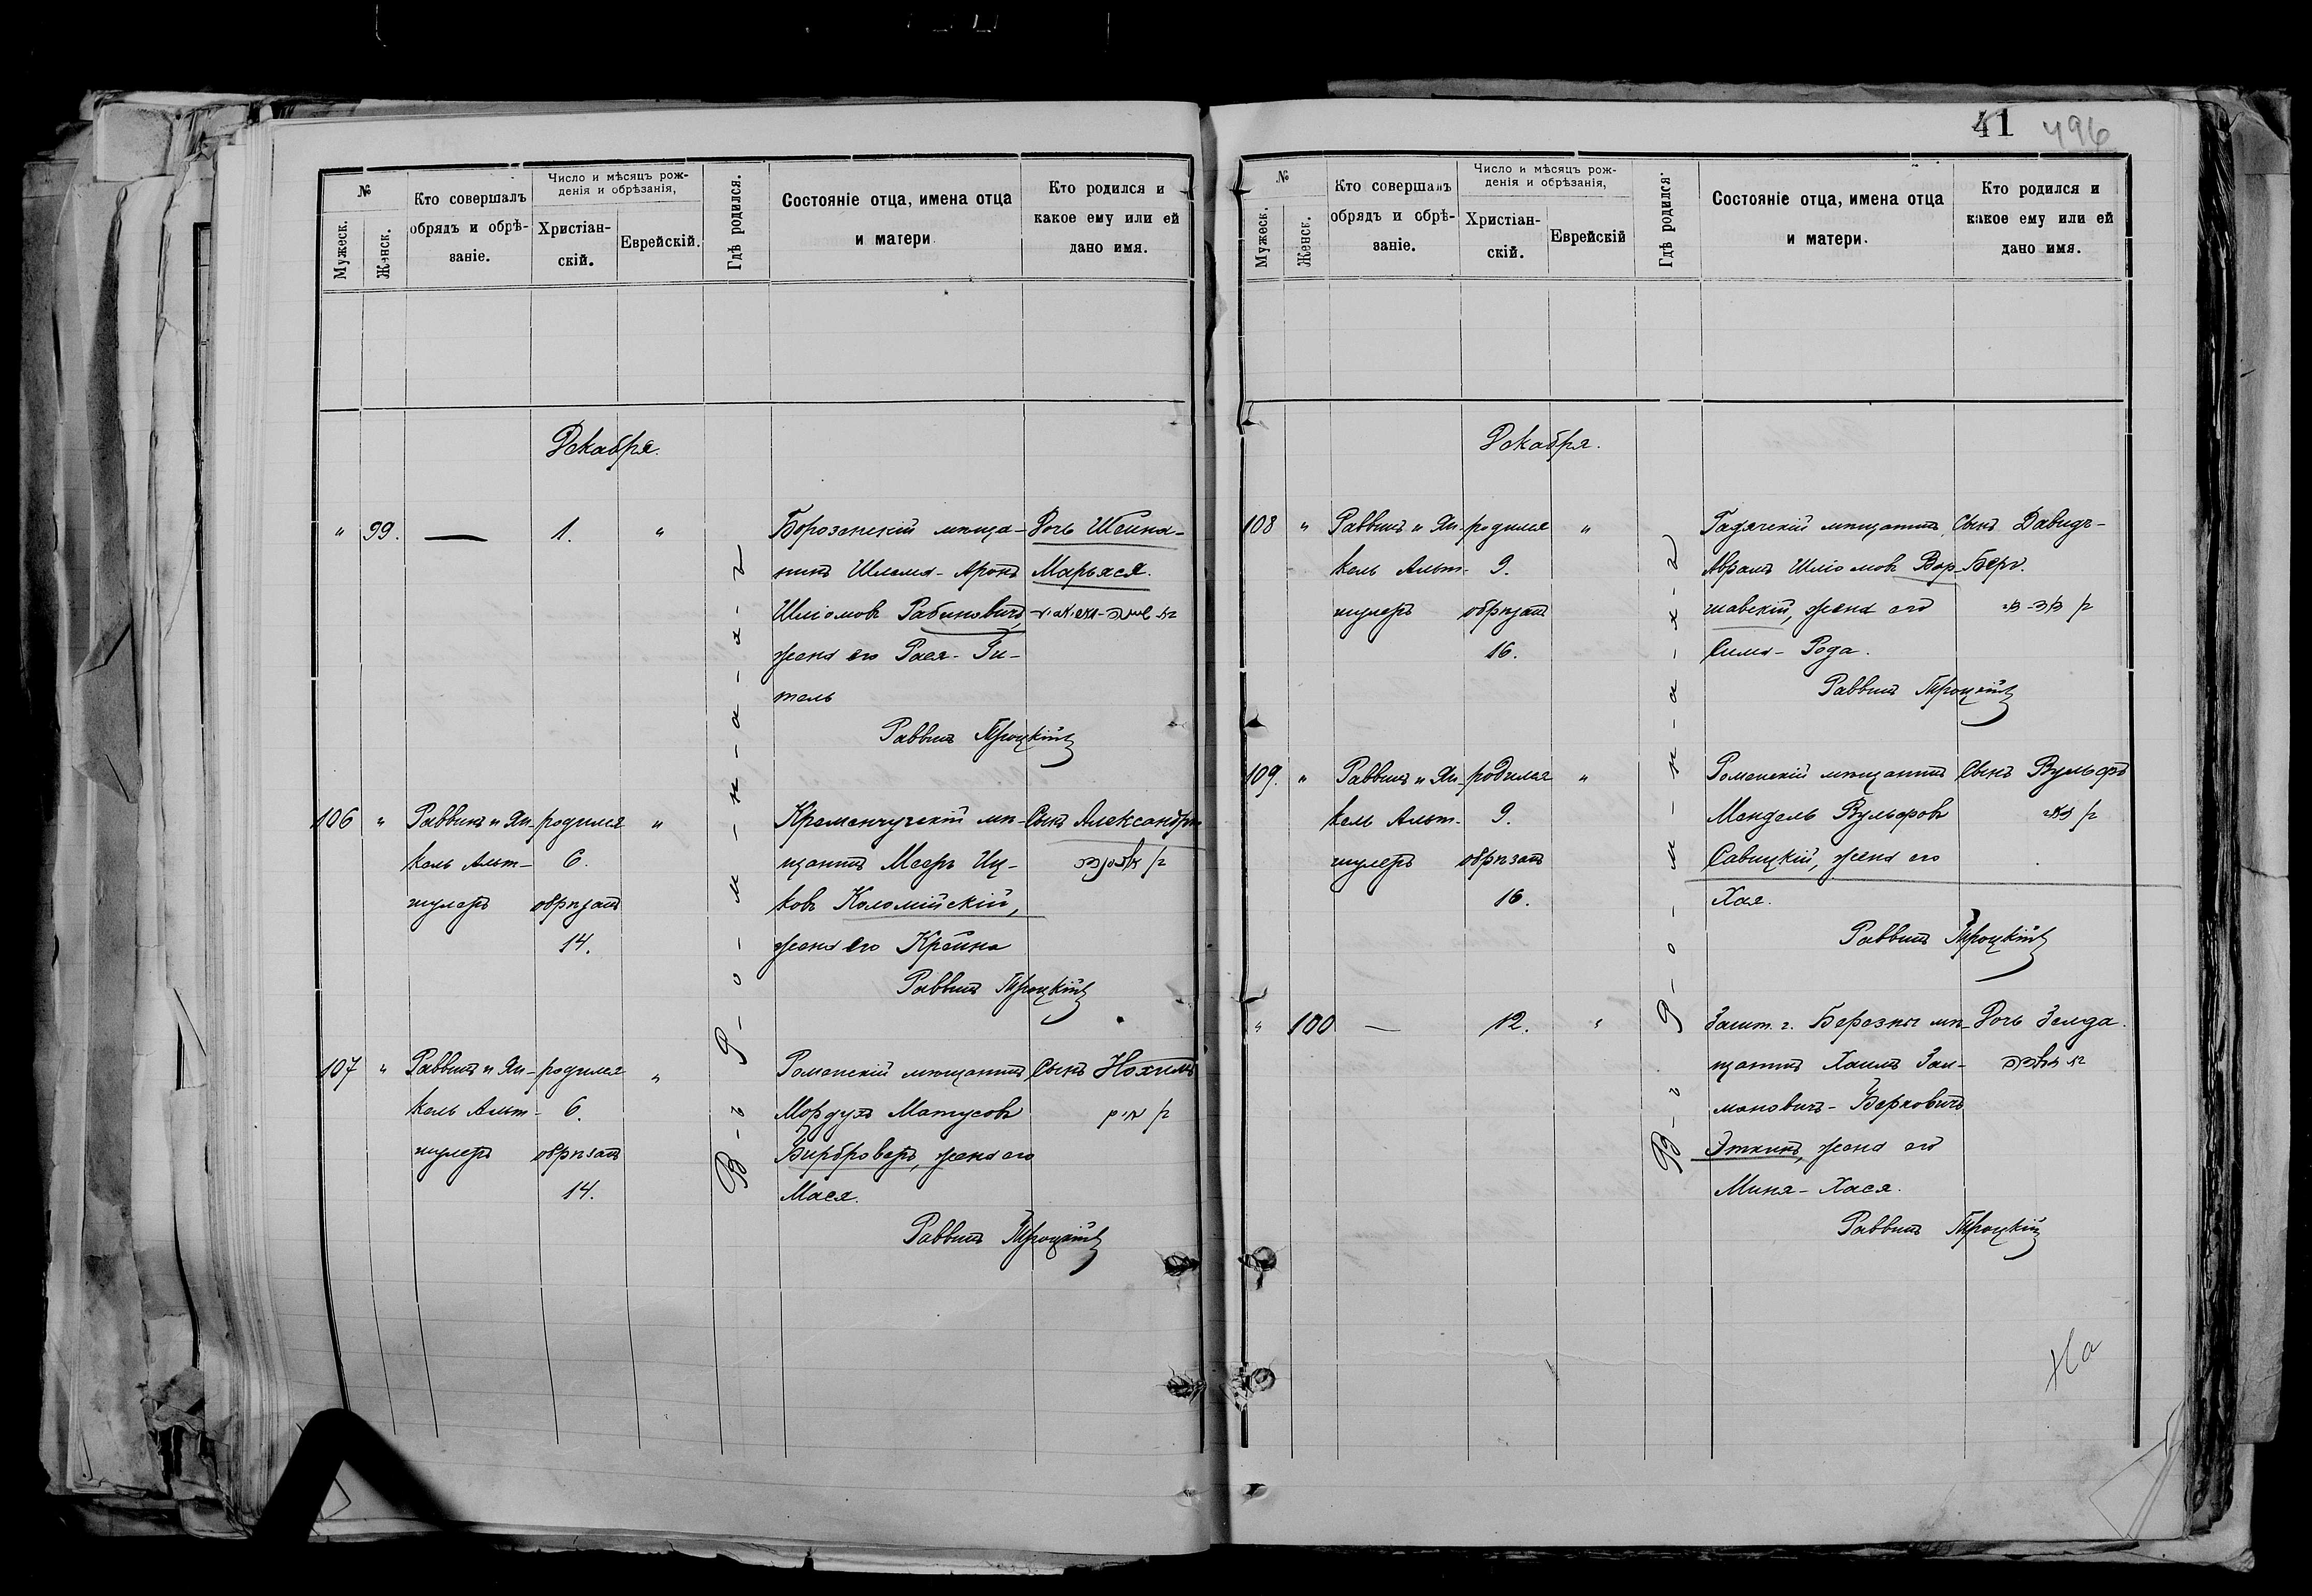 41 496
№
Мужеск.
Женск.
Кто совершалъ
обрядъ и обрѣ-
заніе.
Число и мѣсяцъ рож-
денія и обрѣзанія,
Христіан-
скій.
Еврейскій.
Гдѣ родился.
Состояніе отца, имена отца
и матери
Кто родился и
какое ему или ей
дано имя.
Декабря.
В-ъ Р-о-м-н-а-х-ъ
" 99. — 1. "
Борозенскій мѣща-
нинъ Шлема-Аронъ
Шліомовъ Рабиновичъ,
жена его Рася-Ги-
тель
Дочь Шейна-
Марьяся.
Раввинъ Троцкій
106 " Раввинъ и Ян-
кель Альт-
шулеръ
родился
6.
обрѣзанъ
14.
"
Кременчугскій мѣ-
щанинъ Мееръ Иц-
ковъ Коломійскій,
жена его Крейна
Сынъ Александръ
Раввинъ Троцкій
107 " Раввинъ и Ян-
кель Альт-
шулеръ
родился
6.
обрѣзанъ
14.
"
Роменскій мѣщанинъ
Мордухъ Матусовъ
Вирброверъ, жена его
Мася.
Сынъ Нохимъ
Раввинъ Троцкій
№
Мужеск.
Женск.
Кто совершалъ
обрядъ и обрѣ-
заніе.
Число и мѣсяцъ рож-
денія и обрѣзанія,
Христіан-
скій.
Еврейскій
Гдѣ родился.
Состояніе отца, имена отца
и матери.
Кто родился и
какое ему или ей
дано имя.
Декабря.
В-ъ Р-о-м-н-а-х-ъ
108 " Раввинъ и Ян-
кель Альт-
шулеръ
родился
9.
обрѣзанъ
16.
"
Гадячскій мѣщанинъ
Абрамъ Шліомовъ Вар-
шавскій, жена его
Сима-Рода.
Сынъ Давидъ-
Беръ.
Раввинъ Троцкій
109. " Раввинъ и Ян-
кель Альт-
шулеръ
родился
9.
обрѣзанъ
16.
"
Роменскій мѣщанинъ
Мендель Вульфовъ
Савицкій, жена его
Хая.
Сынъ Вульфъ
Раввинъ Троцкій
" 100 — 12. "
Зашт. г. Березны мѣ-
щанинъ Хаимъ Зал-
мановичъ-Берковичъ
Эткинъ, жена его
Миня-Хася.
Дочь Зелда.
Раввинъ Троцкій
На